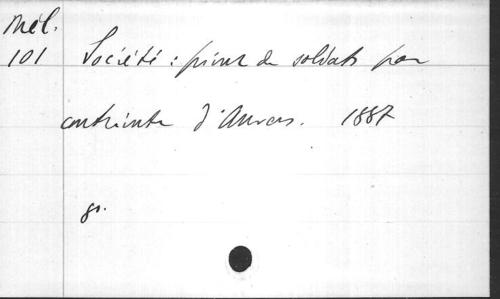 Mél.
101 Société : privée de soldats par
contrainte d'Anvers. 1887
8o.